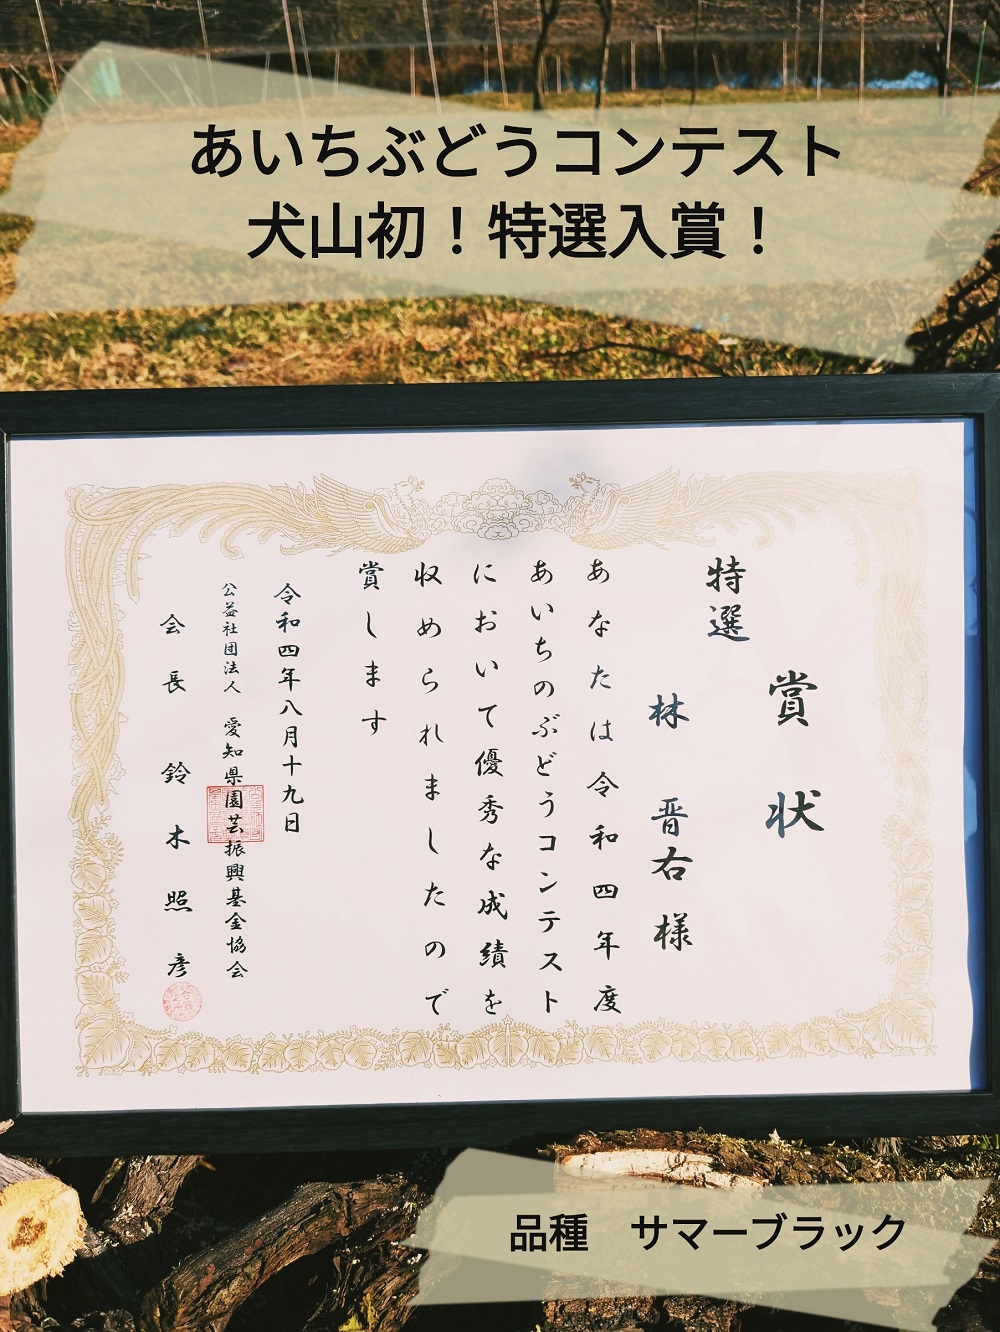 あいちぶどうコンテスト
犬山初！特選入賞！
賞状
特選
林 晋右様
あなたは令和四年度
あいちのぶどうコンテスト
において優秀な成績を
収められましたので
賞します
令和四年八月十九日
公益社団法人 愛知県園芸振興基金協会
会長 鈴木照彦
品種 サマーブラック